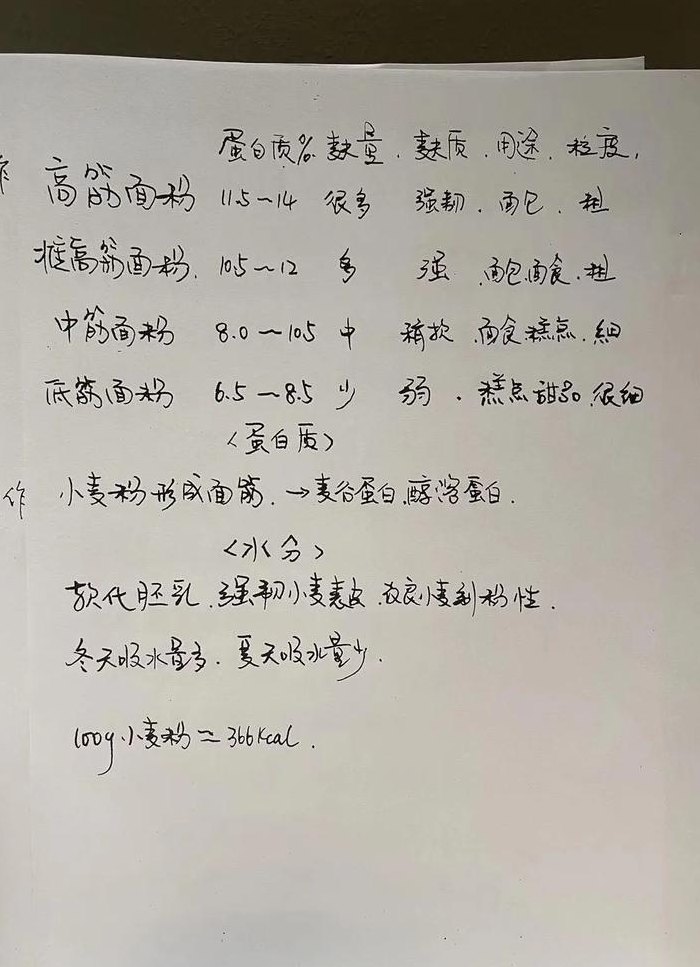 蛋白质% 麸量、麸质、用途、粒度,
高筋面粉 11.5~14 很多 强韧、面包、粗
准高筋面粉. 10.5~12 多 强 面包面食、粗
中筋面粉 8.0~10.5 中 稍软 面食糕点、细
底筋面粉 6.5~8.5 少 弱、糕点甜品、很细
<蛋白质>
作 小麦粉形成面筋、→麦谷蛋白、醇溶蛋白.
<水分>
软化胚乳、强韧小麦表皮、改良小麦制粉性.
冬天吸水量多、夏天吸水量少.
100g小麦粉=366Kcal.